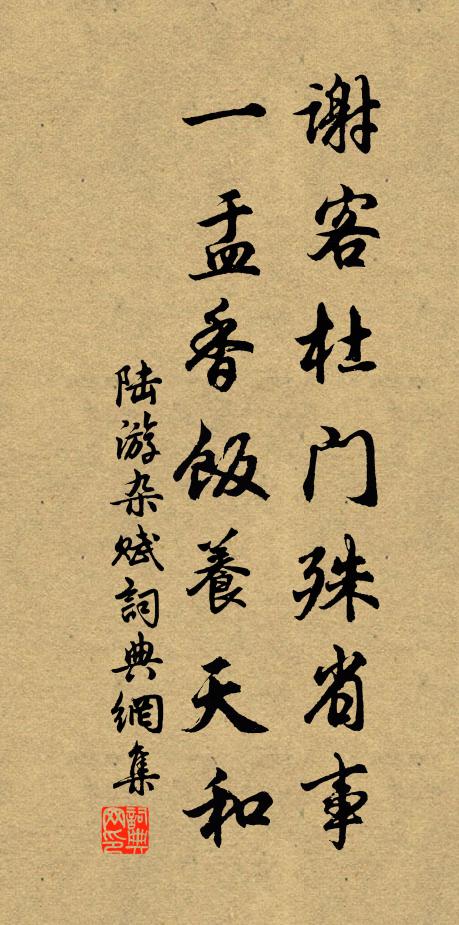 谢客杜门殊省事
一盂香飯養天和
陆游杂赋詞典網集
詞典网印